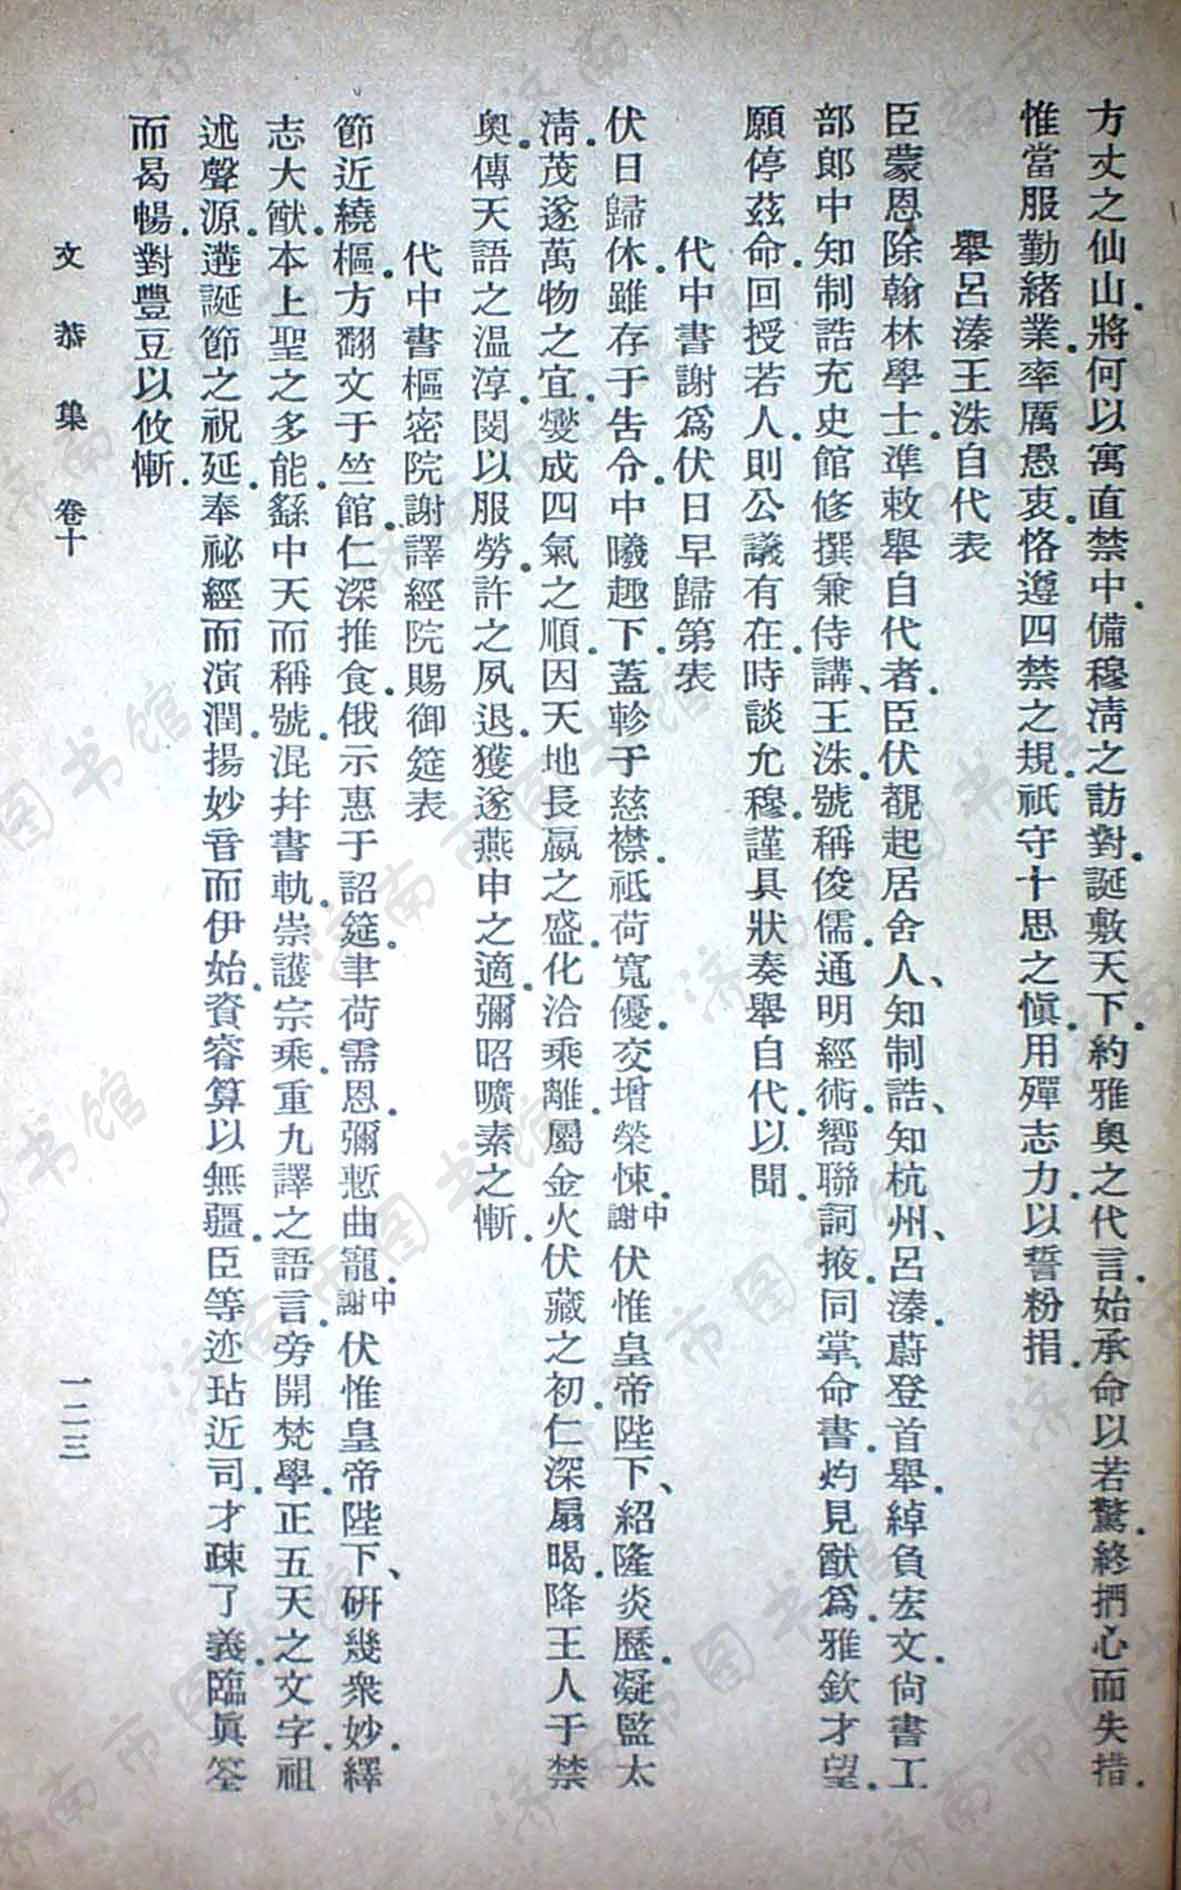 方丈之仙山.將何以寓直禁中.備穆淸之訪對.誕敷天下.約雅奧之代言.始承命以若驚.終捫心而失措.
惟當服勤緖業.率厲愚衷.恪遵四禁之規.祇守十思之愼.用殫志力.以誓粉捐.
舉呂溱王洙自代表
臣蒙恩.除翰林學士.準敕舉自代者.臣伏覩起居舍人、知制誥、知杭州、呂溱.蔚登首舉.綽負宏文.尙書工
部郞中知制誥充史館修撰兼侍講、王洙.號稱俊儒.通明經術.嚮聯詞掖.同掌命書.灼見猷爲.雅欽才望.
願停茲命.回授若人.則公議有在.時談允穆.謹具狀奏舉自代.以聞.
代中書謝爲伏日早歸第表
伏日歸休.雖存于告令.中曦趣下.蓋軫于慈襟.祗荷寬優.交增榮悚.中謝伏惟皇帝陛下、紹隆炎歷.凝監太
淸.茂遂萬物之宜.燮成四氣之順.因天地長嬴之盛.化洽乘離.屬金火伏藏之初.仁深扇暍.降王人于禁
奧.傳天語之溫淳.閔以服勞.許之夙退.獲遂燕申之適.彌昭曠素之慚.
代中書樞密院謝譯經院賜御筵表
節近繞樞.方翻文于竺館.仁深推食.俄示惠于詔筵.聿荷需恩.彌慙曲寵.中謝伏惟皇帝陛下、硏幾衆妙.繹
志大猷.本上聖之多能.繇中天而稱號.混幷書軌.崇護宗乘.重九譯之語言.旁開梵學.正五天之文字.祖
述聲源.遘誕節之祝延.奉祕經而演潤.揚妙音而伊始.資睿算以無疆.臣等迹玷近司.才疎了義.臨眞筌
而曷暢.對豐豆以攸慚.
文恭集 卷十
一二三